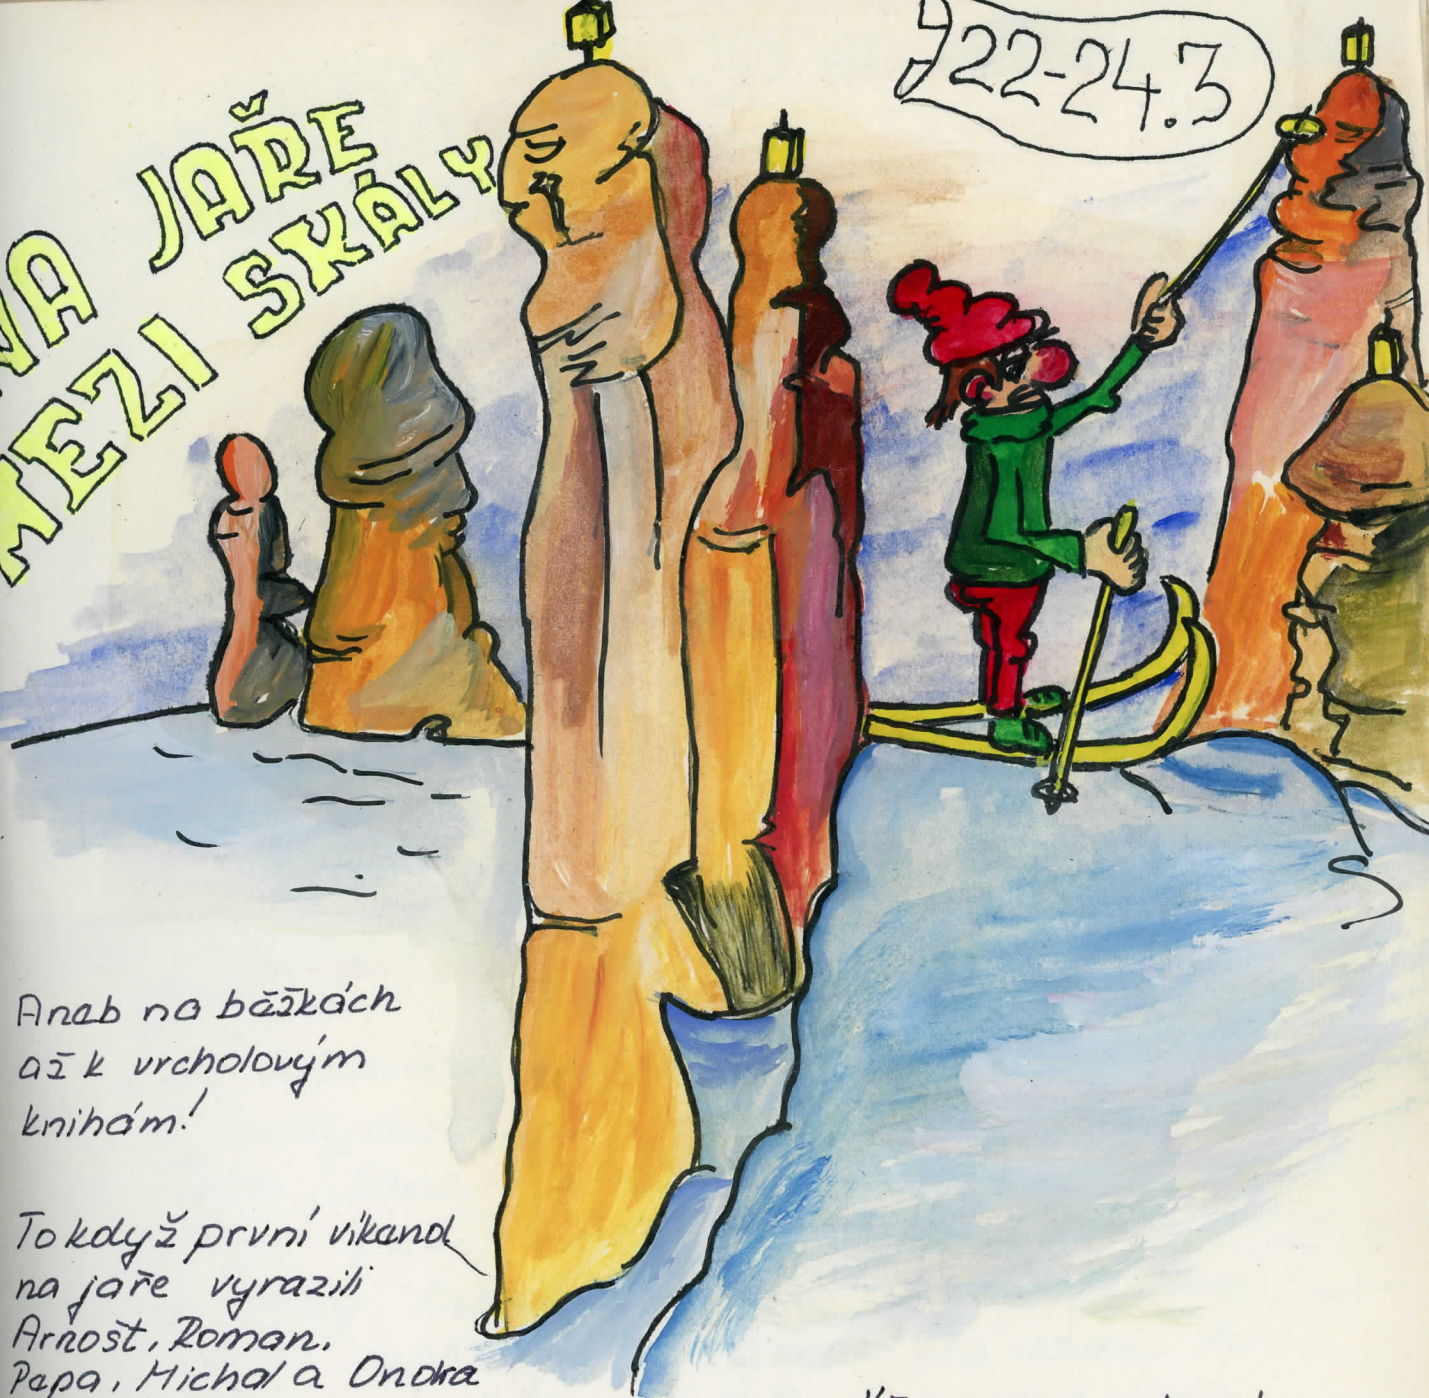 NA JAŘE
MEZI SKÁLY
22-24.3
Aneb na běžkách
až k vrcholovým
knihám!
To když první víkend
na jaře vyrazili
Arnošt, Roman,
Pepa, Michal a Ondra